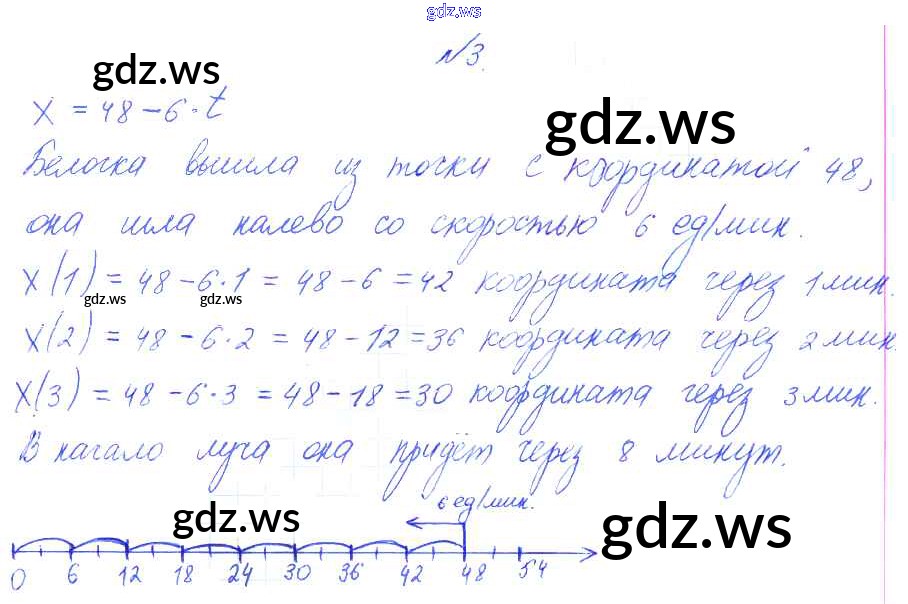 gdz.ws
№3.
gdz.ws
gdz.ws
x = 48 - 6 · t
Белочка вышла из точки с координатой 48,
она шла налево со скоростью 6 ед/мин.
x(1) = 48 - 6·1 = 48 - 6 = 42 координата через 1 мин.
gdz.ws gdz.ws
x(2) = 48 - 6·2 = 48 - 12 = 36 координата через 2 мин.
x(3) = 48 - 6·3 = 48 - 18 = 30 координата через 3 мин.
В начало луча она придёт через 8 минут.
6 ед/мин.
gdz.ws gdz.ws
0 6 12 18 24 30 36 42 48 54